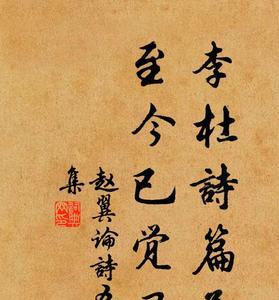 李杜詩篇
至今已觉
赵翼論詩
集